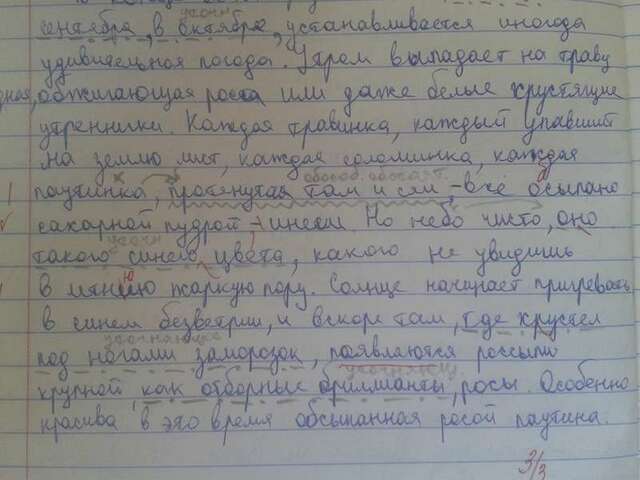 сентября, в октябре, устанавливается иногда
уточн.
удивительная погода. Утром выпадает на траву
дная, обжигающая роса или даже белые хрустящие
утренники. Каждая травинка, каждый упавший
на землю лист, каждая соломинка, каждая
обособ. обстоят.
паутинка, протянутая там и сям, - все осыпано
сахарной пудрой - инеем. Но небо чисто, оно
уточн
такого синего цвета, какого не увидишь
в летнюю жаркую пору. Солнце начинает пригревать
в синем безветрии, и вскоре там, где хрустел
уточняющее
под ногами заморозок, появляются россыпи
уточняющ.
крупной, как отборные бриллианты, росы. Особенно
красива в это время обсыпанная росой паутина.
3/3